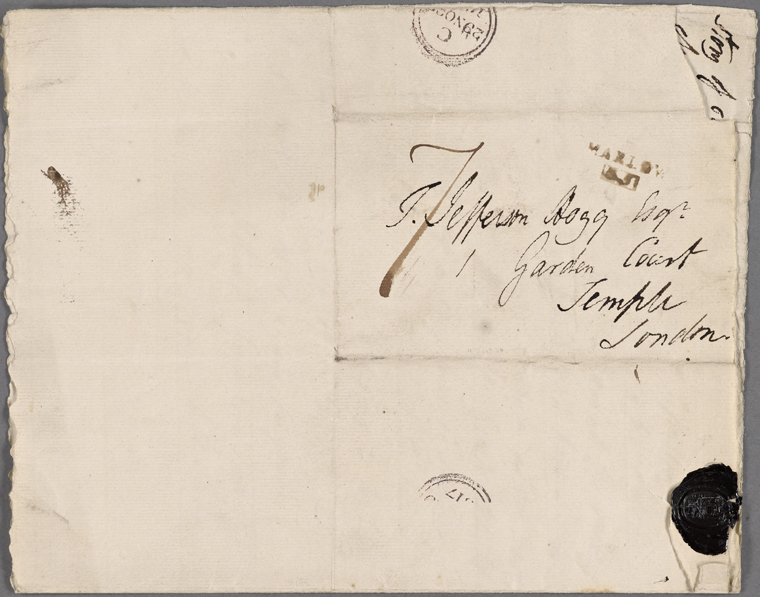 C
29 NO
7
MARLOW
T. Jefferson Hogg Esqr.
1 Garden Court
Temple
London.
817